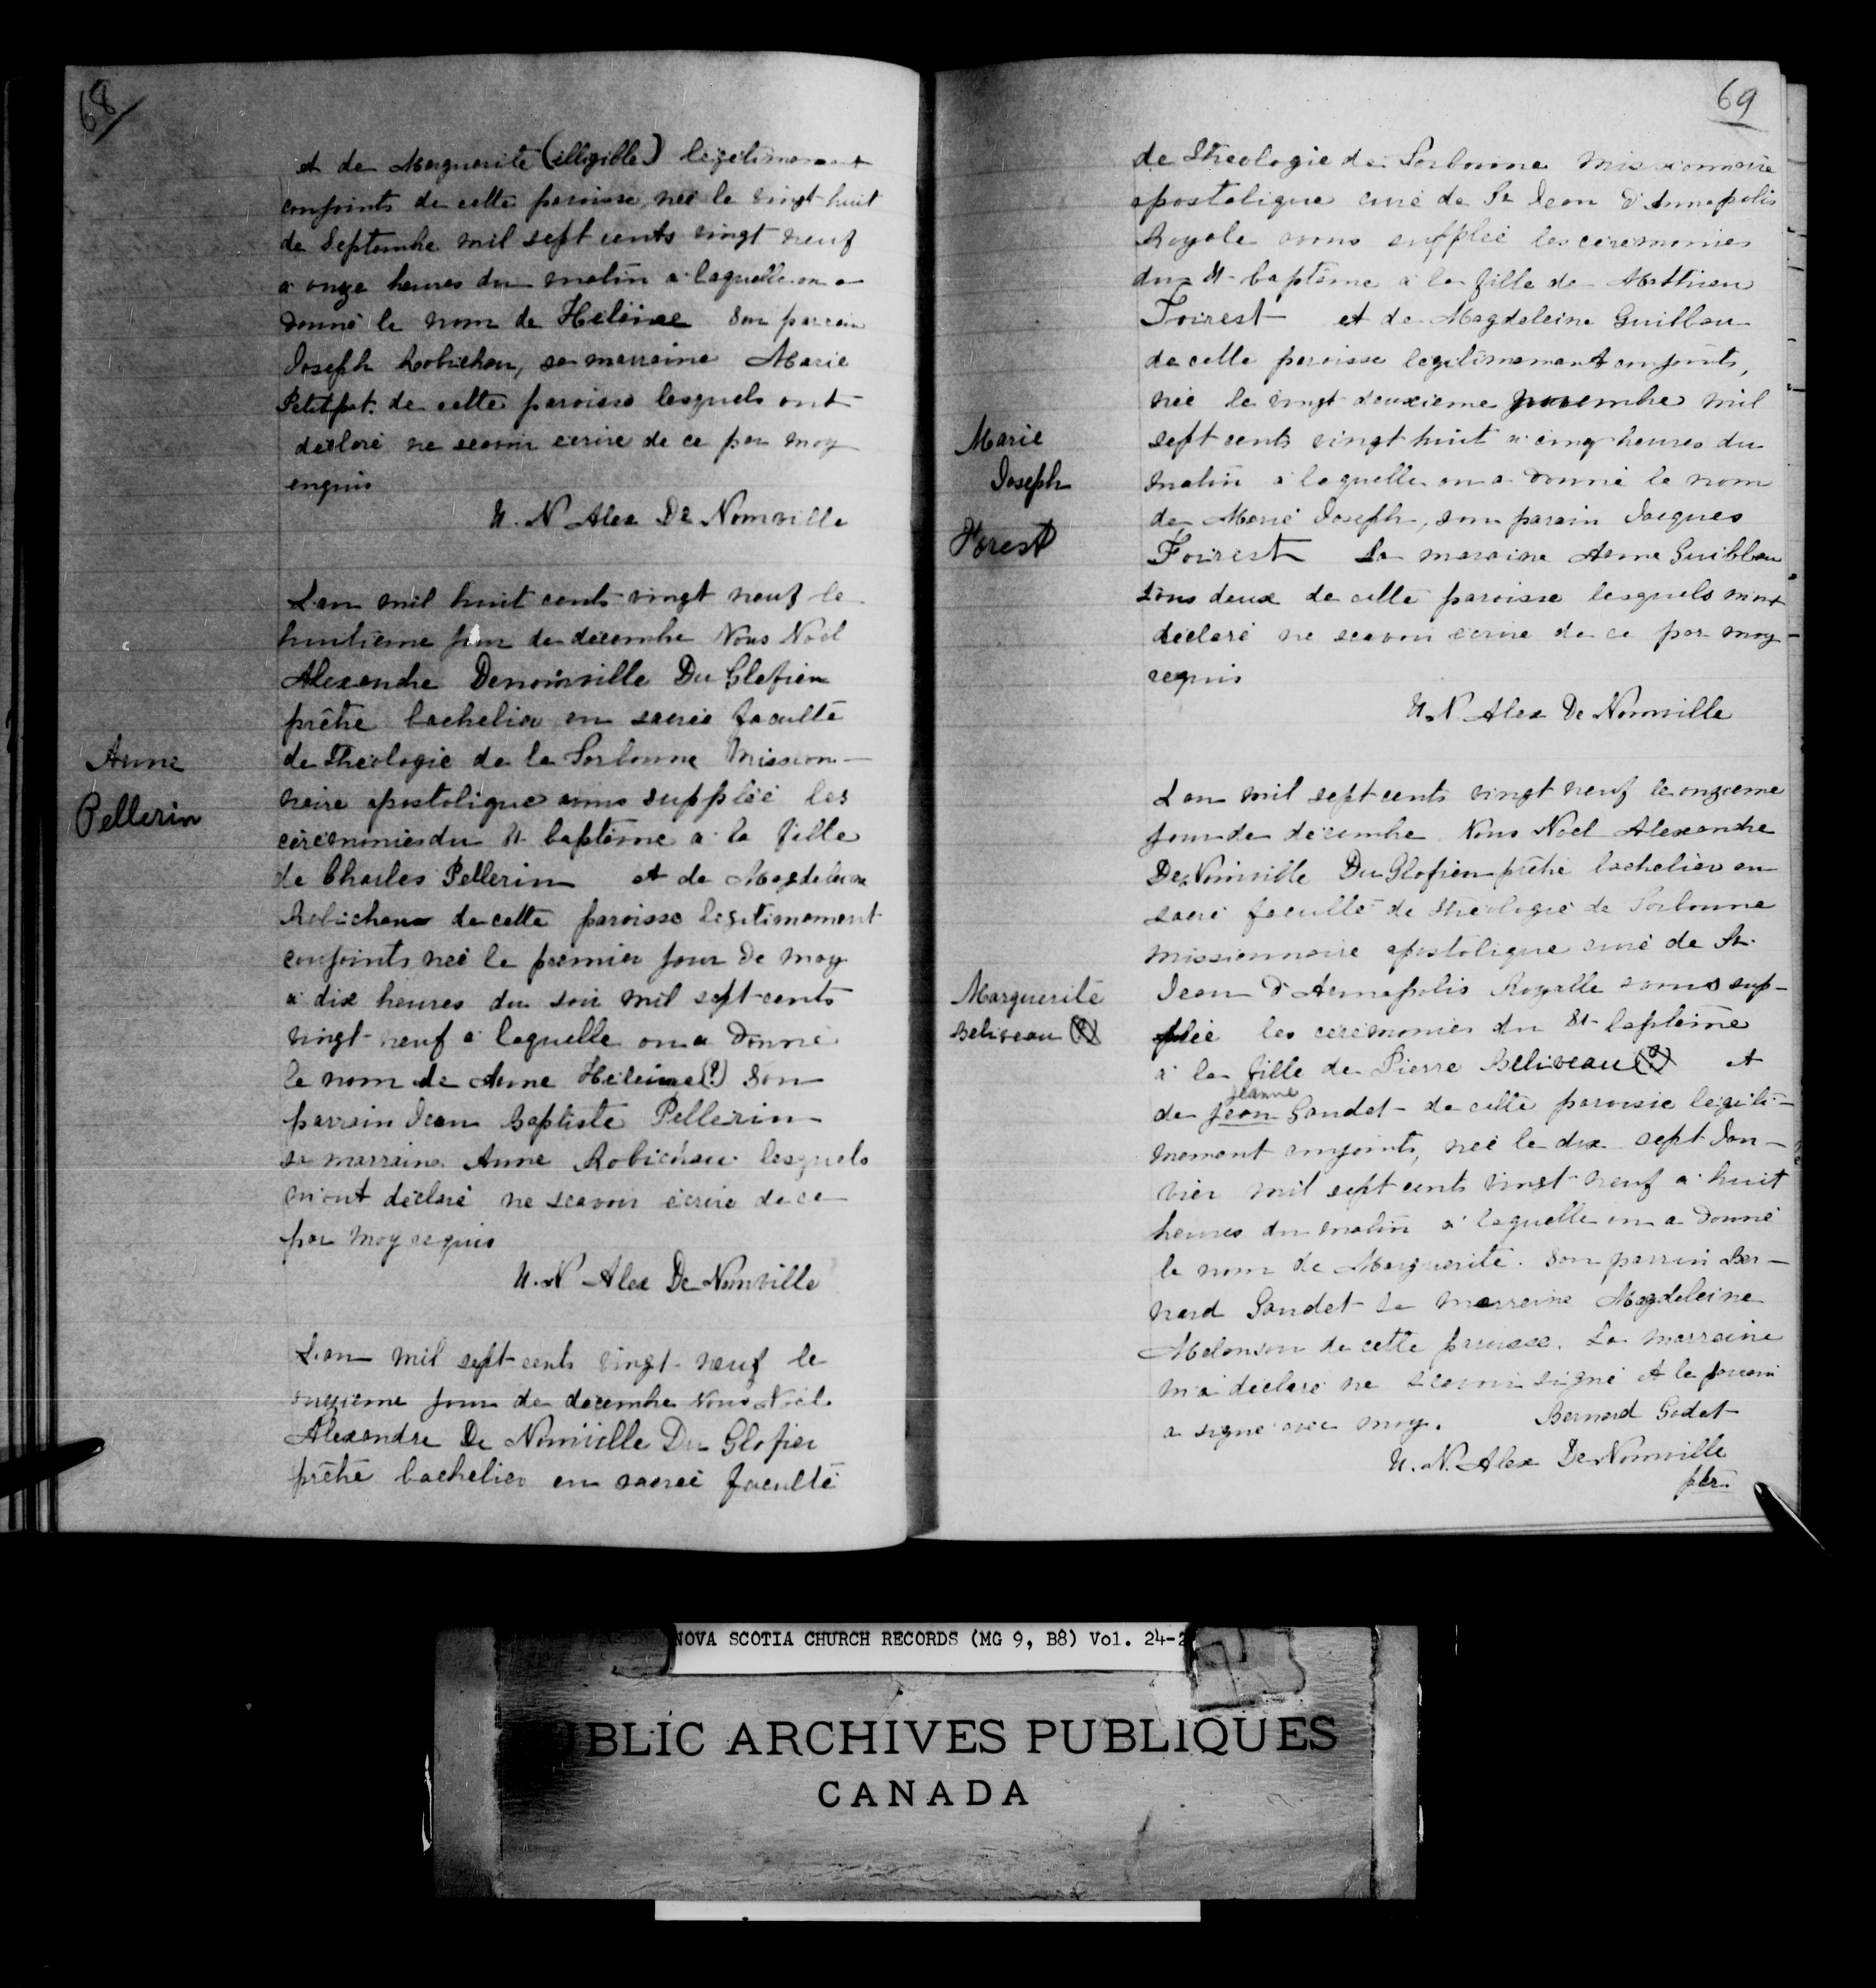 68
et de Marguerite (illigible) legitimement
conjoints de cette paroisse, neé le vingt huit
de Septembre mil sept cents vingt neuf
a onze heures du matin a laquelle on a
donné le nom de Heléine Son parrain
Joseph Robichau, sa marraine Marie
Petitpat. de cette paroisse lesquels ont
declaré ne scavoir ecrire de ce par moy
enquis
N. Alex De Nonville
L'an mil huit cents vingt neuf le
huitieme jour de decembre Nous Noël
Alexandre Denoinville Du Glefien
prêtre bachelier en sacrée faculté
de Theologie de la Sorbonne Mission-
naire apostolique avons suppléé les
cérémonies du St baptême a la fille
Anne
Pellerin
de Charles Pellerin et de Magdeleine
Robichau de cette paroisse legitimement
conjoints neé le premier jour de may
a dix heures du soir mil sept cents
vingt neuf a laquelle on a donné
le nom de Anne Heleine(?) son
parrain Jean Baptiste Pellerin
sa marraine Anne Robichau lesquels
m'ont déclaré ne scavoir écrire de ce
par moy requis
N. Alex De Nonville
L'an mil sept cents vingt neuf le
onzieme jour de decembre Nous Noël
Alexandre De Noinville Du Glofien
prêtre bachelier en sacreé faculté
69
de Theologie de Sorbonne Missionnaire
apostolique curé de St Jean d'Annapolis
Royale avons suppléé les ceremonies
du St baptême a la fille de Matthieu
Foirest et de Magdeleine Guilbau
de cette paroisse legitimement conjoints,
neé le vingt deuxieme novembre mil
Marie
Joseph
Forest
sept cents vingt huit a cinq heures du
matin a laquelle on a donné le nom
de Marie Joseph, son parain Jacques
Foirest La maraine Anne Guilbau
tous deux de cette paroisse lesquels m'ont
déclaré ne scavoir écrire de ce par moy
requis
N. Alex De Nonville
L'an mil sept cents vingt neuf le onzieme
jour de décembre Nous Noel Alexandre
De Noinville Du Glofien prêtre bachelier en
sacré faculté de Theologie de Sorbonne
missionnaire apostolique curé de St.
Marguerite
Beliveau (?)
Jean d'Annapolis Royalle avons sup-
pleé les cérémonies du St baptême
a la fille de Pierre Beliveau (?) et
de Jean Jeanne Gaudet de cette paroisse legiti-
mement conjoints, neé le dix sept Jan-
vier mil sept cents vingt neuf a huit
heures du matin a laquelle on a donné
le nom de Marguerite. Son parrin Ber-
nard Gaudet la marreine Magdeleine
Melonson de cette paroisse. La marraine
m'a déclaré ne scavoir signé et le parrain
a signé avec moy. Bernard Godet
N. Alex De Nonville
ptr.
NOVA SCOTIA CHURCH RECORDS (MG 9, B8) Vol. 24-2
BLIC ARCHIVES PUBLIQUES
CANADA